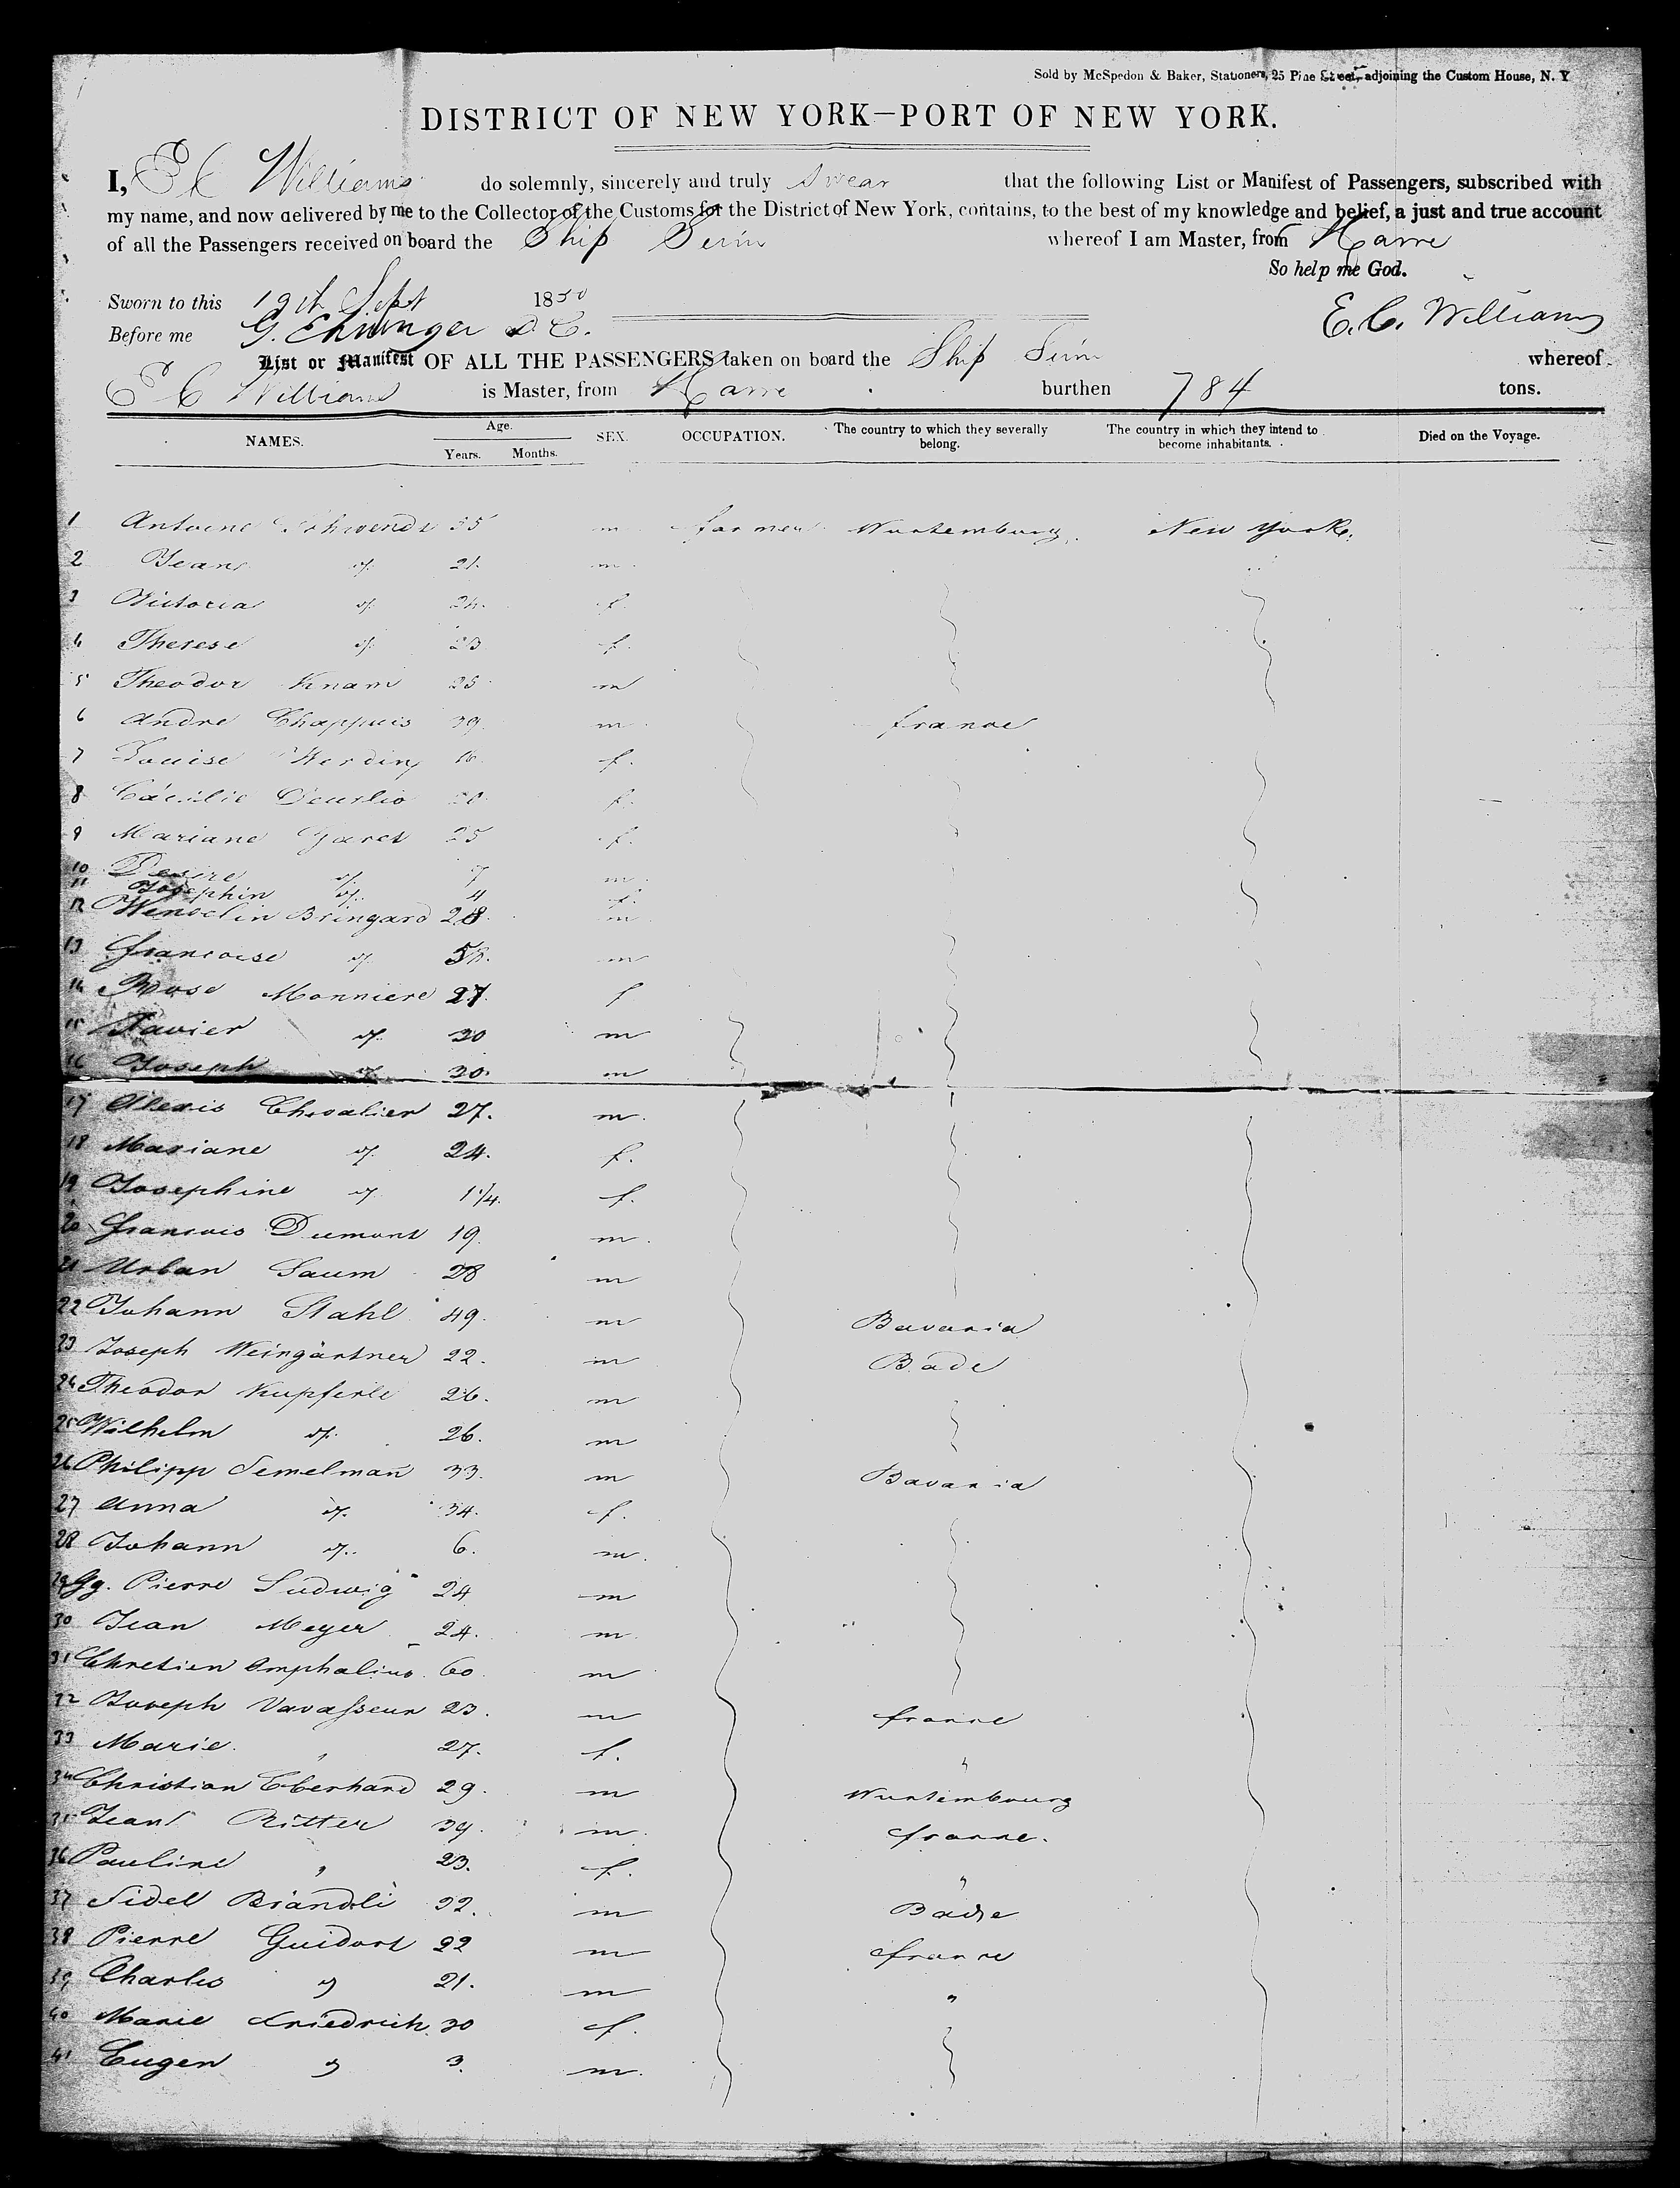 Sold by McSpedon & Baker, Stationers, 25 Pine Street, adjoining the Custom House, N. Y
DISTRICT OF NEW YORK—PORT OF NEW YORK.
I, E C Williams do solemnly, sincerely and truly swear that the following List or Manifest of Passengers, subscribed with
my name, and now delivered by me to the Collector of the Customs for the District of New York, contains, to the best of my knowledge and belief, a just and true account
of all the Passengers received on board the Ship whereof I am Master, from Havre
So help me God.
Sworn to this 19th Sept 1850
E. C. Williams
Before me G. D. C.
List or Manifest OF ALL THE PASSENGERS taken on board the Ship whereof
E C Williams is Master, from Havre burthen 784 tons.
NAMES. Age. Years. Months. SEX. OCCUPATION. The country to which they severally belong. The country in which they intend to become inhabitants. Died on the Voyage.
1 Antoine Schwendt 35 m farmer Wurtemburg. New Yorke.
2 Jean d. 21. m
3 Victoria d. 24. f.
4 Therese d. 23 f.
5 Theodor Knam 25 m
6 Andre Chappuis 39 m france
7 Louise 16 f.
8 Cäcilie f.
9 Mariane Jaret 25 f.
10 Desire d. 7 m
11 Josephin d. 4 f.
12 Wendelin Bringard 28 m
13 francoise d. m
14 Rose Monniere 27. f
15 Xavier d. 30 m
16 Joseph d. 30. m
17 Alexis Chevalier 27. m.
18 Mariane d. 24. f.
19 Josephine d. 1 1/4. f.
20 francois Dumont 19. m.
21 Urban Saum 28 m
22 Johann Stahl 49. m Bavaria
23 Joseph Weingärtner 22. m Bade
24 Theodor Kupferle 26. m
25 Wilhelm d. 26. m
26 Philipp Semelman̄ 33. m Bavaria
27 Anna d. 34. f.
28 Johann d. 6. m.
29 Gg. Pierre Ludwig 24 m
30 Jean Meyer 24. m.
31 Chretien Omphalius. 60 m
32 Joseph Vavasseur 23. m france
33 Marie " 27. f. "
34 Christian Eberhard 29. m Wurtembourg
35 Jean Ritter 39. m. france.
36 Pauline " 23. f. "
37 Fidel Brändli 32. m Bade
38 Pierre Guidort 22 m france
39 Charles d 21. m "
40 Marie Friedrich 30 f.
41 Eugen d 3. m.